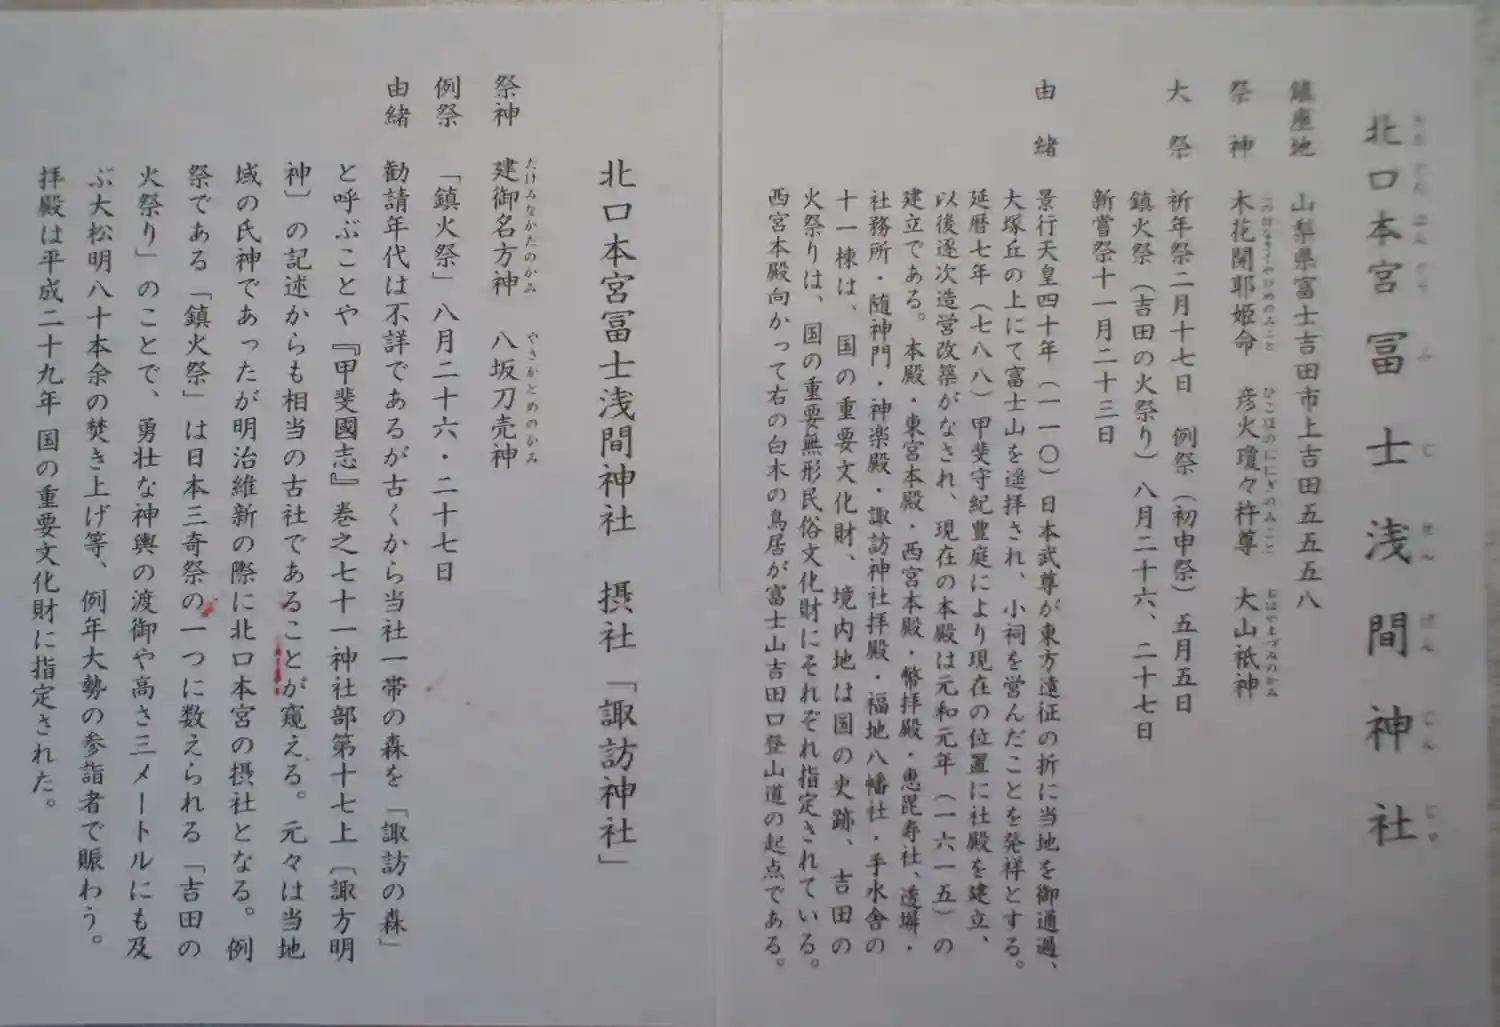 北口本宮冨士浅間神社
鎮座地 山梨県富士吉田市上吉田五五五八
祭神 木花開耶姫命 彦火瓊々杵尊 大山祇神
大祭 祈年祭二月十七日 例祭(初申祭)五月五日
鎮火祭(吉田の火祭り)八月二十六、二十七日
新嘗祭十一月二十三日
由緒 景行天皇四十年(一一〇)日本武尊が東方遠征の折に当地を御通過、
大塚丘の上にて富士山を遥拝され、小祠を営んだことを発祥とする。
延暦七年(七八八)甲斐守紀豊庭により現在の位置に社殿を建立、
以後逐次造営改築がなされ、現在の本殿は元和元年(一六一五)の
建立である。本殿・東宮本殿・西宮本殿・幣拝殿・恵毘寿社、透塀・
社務所・随神門・神楽殿・諏訪神社拝殿・福地八幡社・手水舎の
十一棟は、国の重要文化財、境内地は国の史跡、吉田の
火祭りは、国の重要無形民俗文化財にそれぞれ指定されている。
西宮本殿向かって右の白木の鳥居が富士山吉田口登山道の起点である。
北口本宮冨士浅間神社 摂社「諏訪神社」
祭神 建御名方神 八坂刀売神
たけみなかたのかみ やさかとめのかみ
例祭 「鎮火祭」八月二十六・二十七日
由緒 勧請年代は不詳であるが古くから当社一帯の森を「諏訪の森」
と呼ぶことや『甲斐國志』巻之七十一神社部第十七上〔諏方明
神〕の記述からも相当の古社であることが窺える。元々は当地
域の氏神であったが明治維新の際に北口本宮の摂社となる。例
祭である「鎮火祭」は日本三奇祭の一つに数えられる「吉田の
火祭り」のことで、勇壮な神輿の渡御や高さ三メートルにも及
ぶ大松明八十本余の焚き上げ等、例年大勢の参詣者で賑わう。
拝殿は平成二十九年国の重要文化財に指定された。